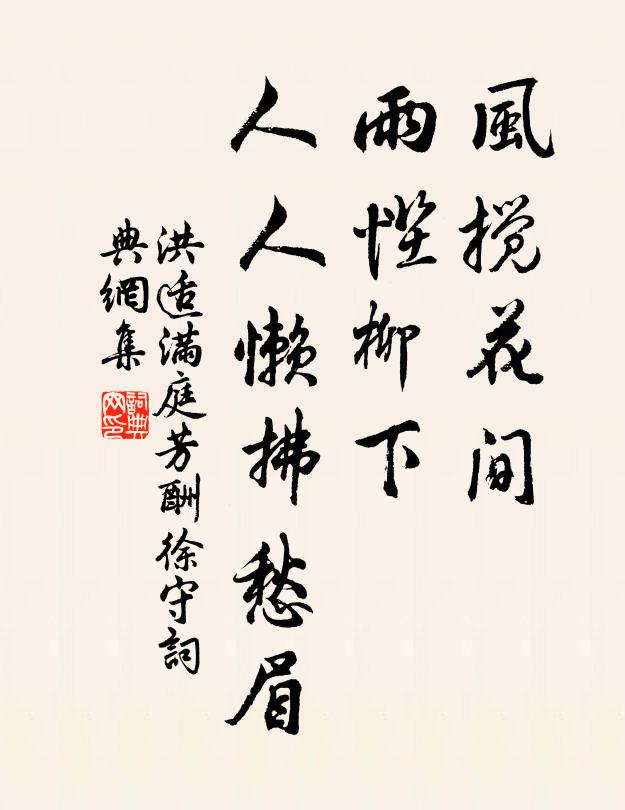 風搅花间
雨悭柳下
人人懶拂愁眉
洪适满庭芳酬徐守詞
典網集
詞典
网印